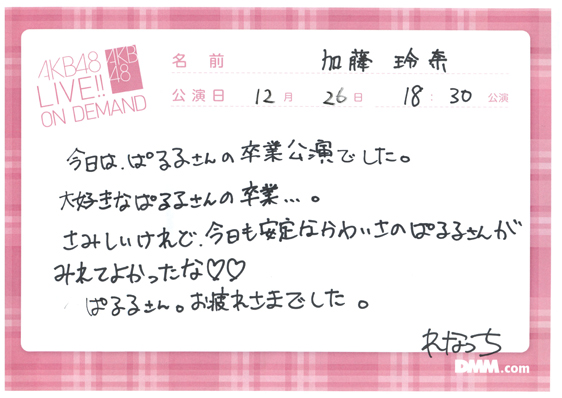 AKB48
LIVE!!
ON DEMAND
AKB
48
名前 加藤 玲奈
公演日 12月 26日 18:30 公演
今日は、ぱるるさんの卒業公演でした。
大好きなぱるるさんの卒業…。
さみしいけれど、今日も安定なかわいさのぱるるさんが
みれてよかったな♡♡
ぱるるさん。お疲れさまでした。
れなっち
DMM.com